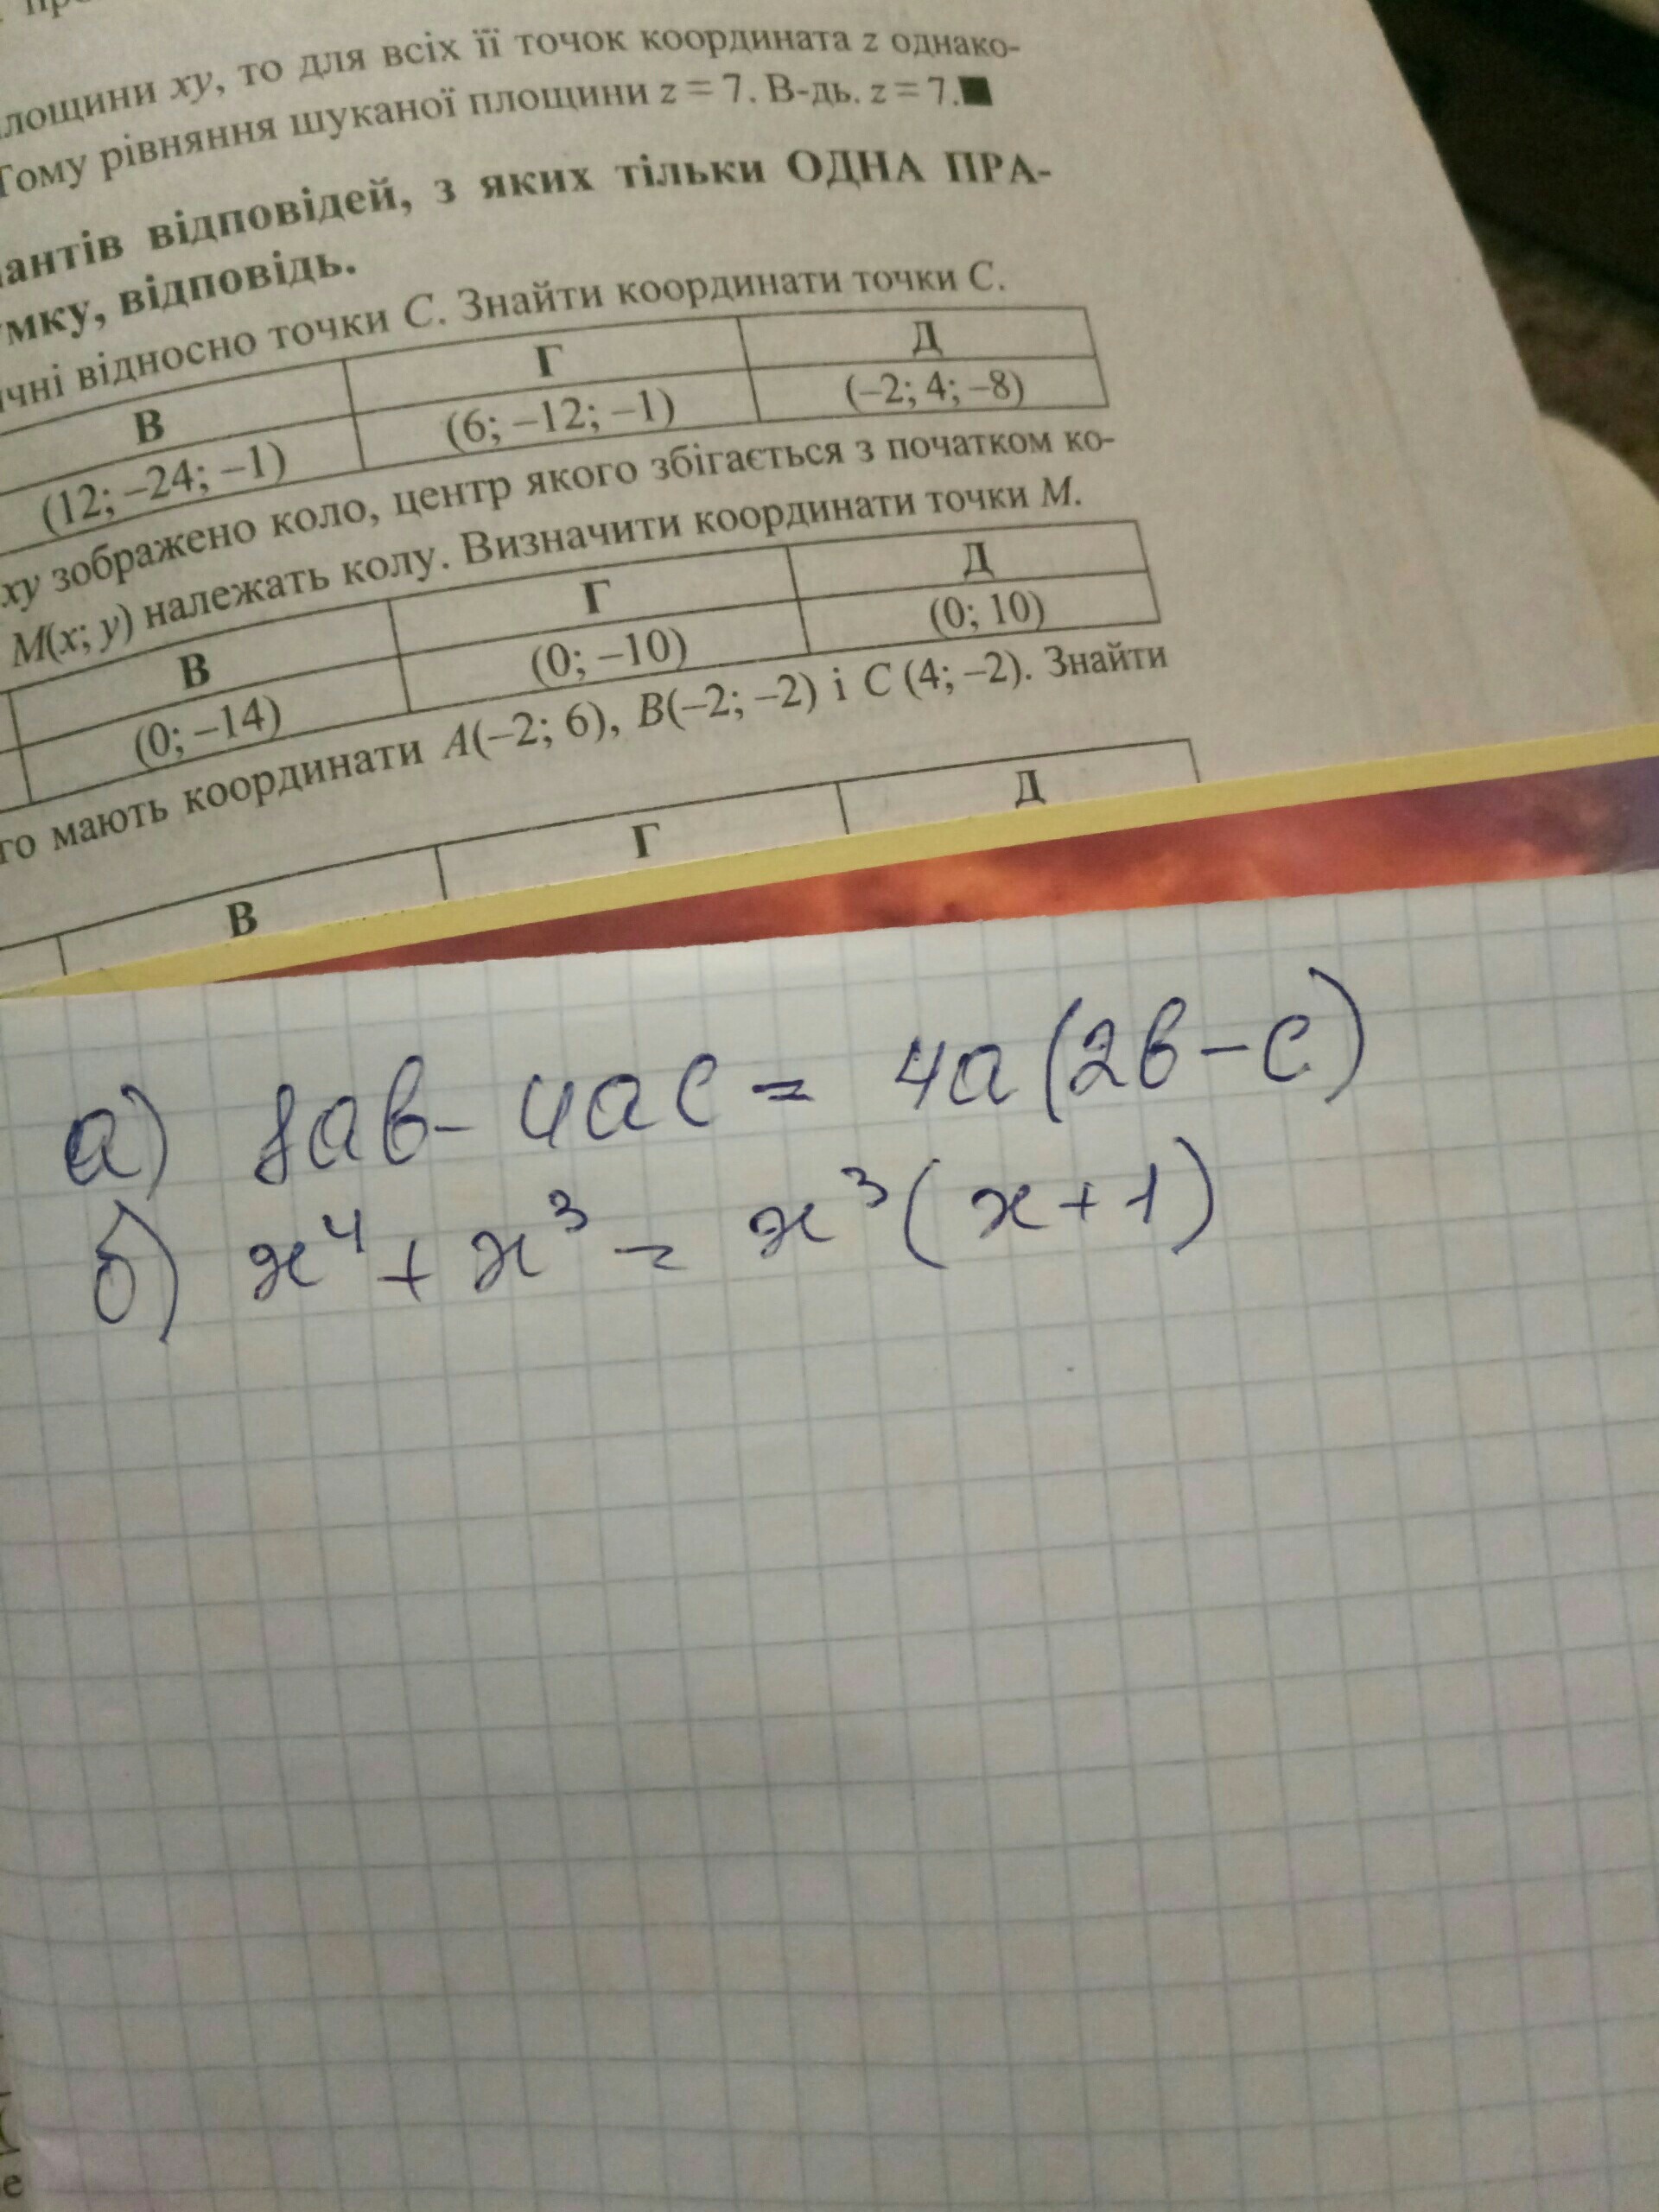 площини xy, то для всіх її точок координата z однако-
Тому рівняння шуканої площини z = 7. В-дь. z = 7.■
відповідей, з яких тільки ОДНА ПРА-
відповідь.
відносно точки C. Знайти координати точки C.
В Г Д
(12; –24; –1) (6; –12; –1) (–2; 4; –8)
xy зображено коло, центр якого збігається з початком ко-
M(x; y) належать колу. Визначити координати точки M.
В Г Д
(0; –14) (0; –10) (0; 10)
мають координати A(–2; 6), B(–2; –2) і C (4; –2). Знайти
В Г Д
а) 8ab - 4ac = 4a(2b - c)
б) x⁴ + x³ = x³(x + 1)